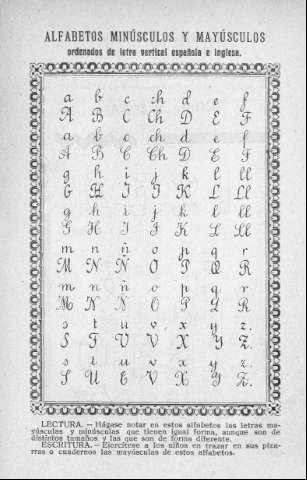 ALFABETOS MINÚSCULOS Y MAYÚSCULOS
ordenados de letra vertical española e inglesa.
a b c ch d e f
A B C Ch D E F
a b c ch d e f
A B C Ch D E F
g h i j k l ll
G H I J K L Ll
g h i j k l ll
G H I J K L Ll
m n ñ o p q r
M N Ñ O P Q R
m n ñ o p q r
M N Ñ O P Q R
s t u v x y z.
S T U V X Y Z.
s t u v x y z.
S U T V X Y Z.
LECTURA. — Hágase notar en estos alfabetos las letras ma-
yúsculas y minúsculas que tienen igual forma, aunque son de
distintos tamaños y las que son de forma diferente.
ESCRITURA. — Ejercítese a los niños en trazar en sus piza-
rras o cuadernos las mayúsculas de estos alfabetos.